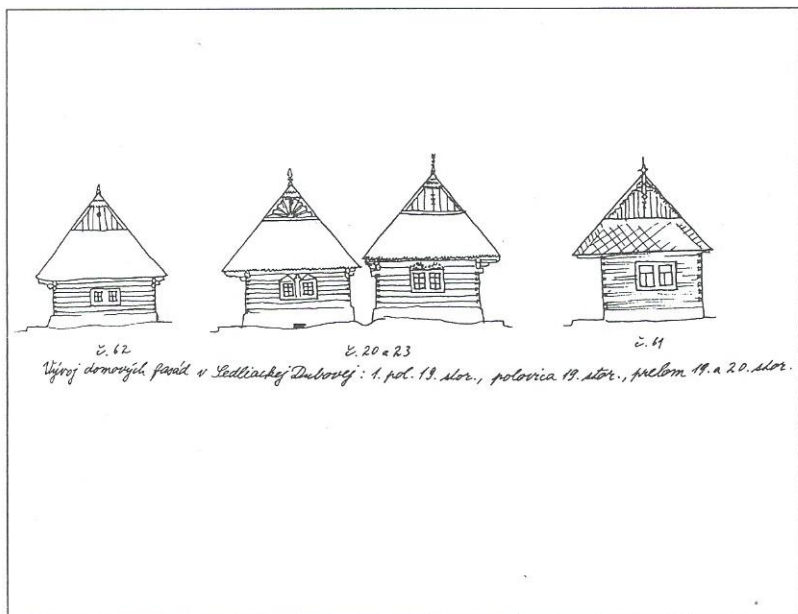 č. 62 č. 20 a 23 č. 61
Vývoj domových fasád v Sedliackej Dubovej: 1. pol. 19. stor., polovica 19. stor., prelom 19. a 20. stor.